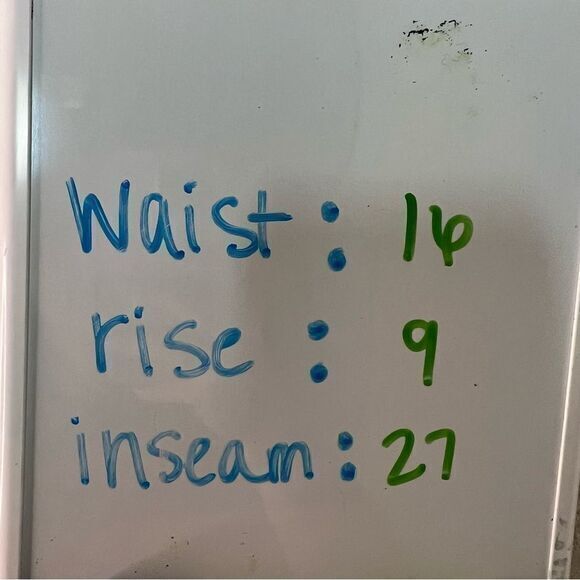 Waist: 16
rise: 9
inseam: 27